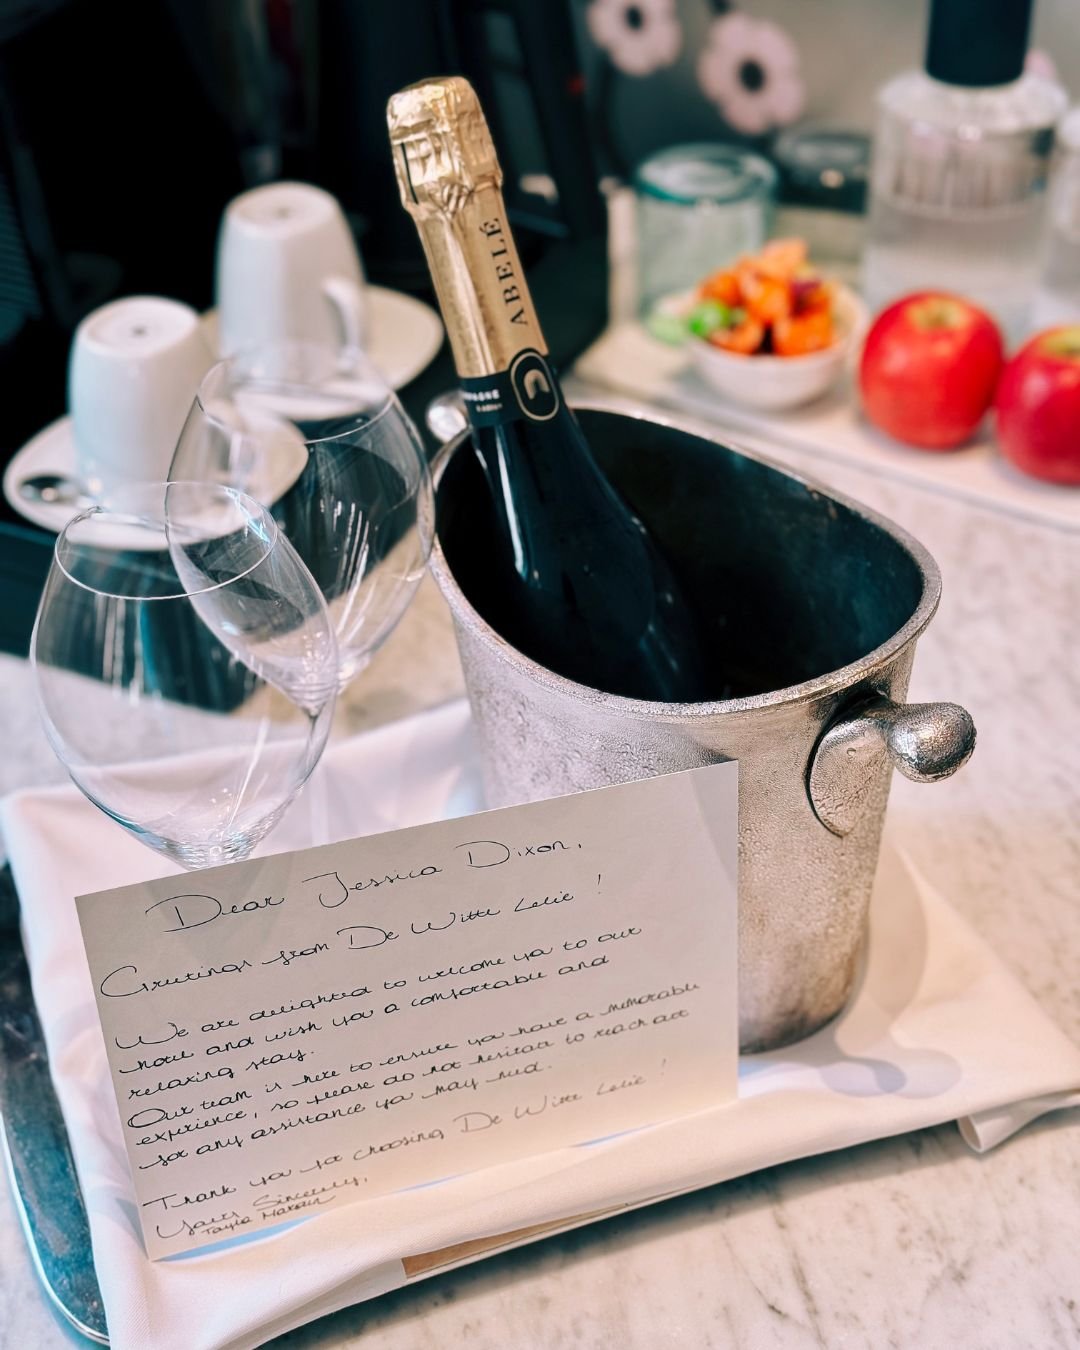 ABELÉ
Dear Jessica Dixon,
Greetings from De Witte Lelie !
We are delighted to welcome you to our
hotel and wish you a comfortable and
relaxing stay.
Our team is here to ensure you have a memorable
experience, so please do not hesitate to reach out
for any assistance you may need.
Thank you for choosing De Witte Lelie !
Yours Sincerely,
Tayla